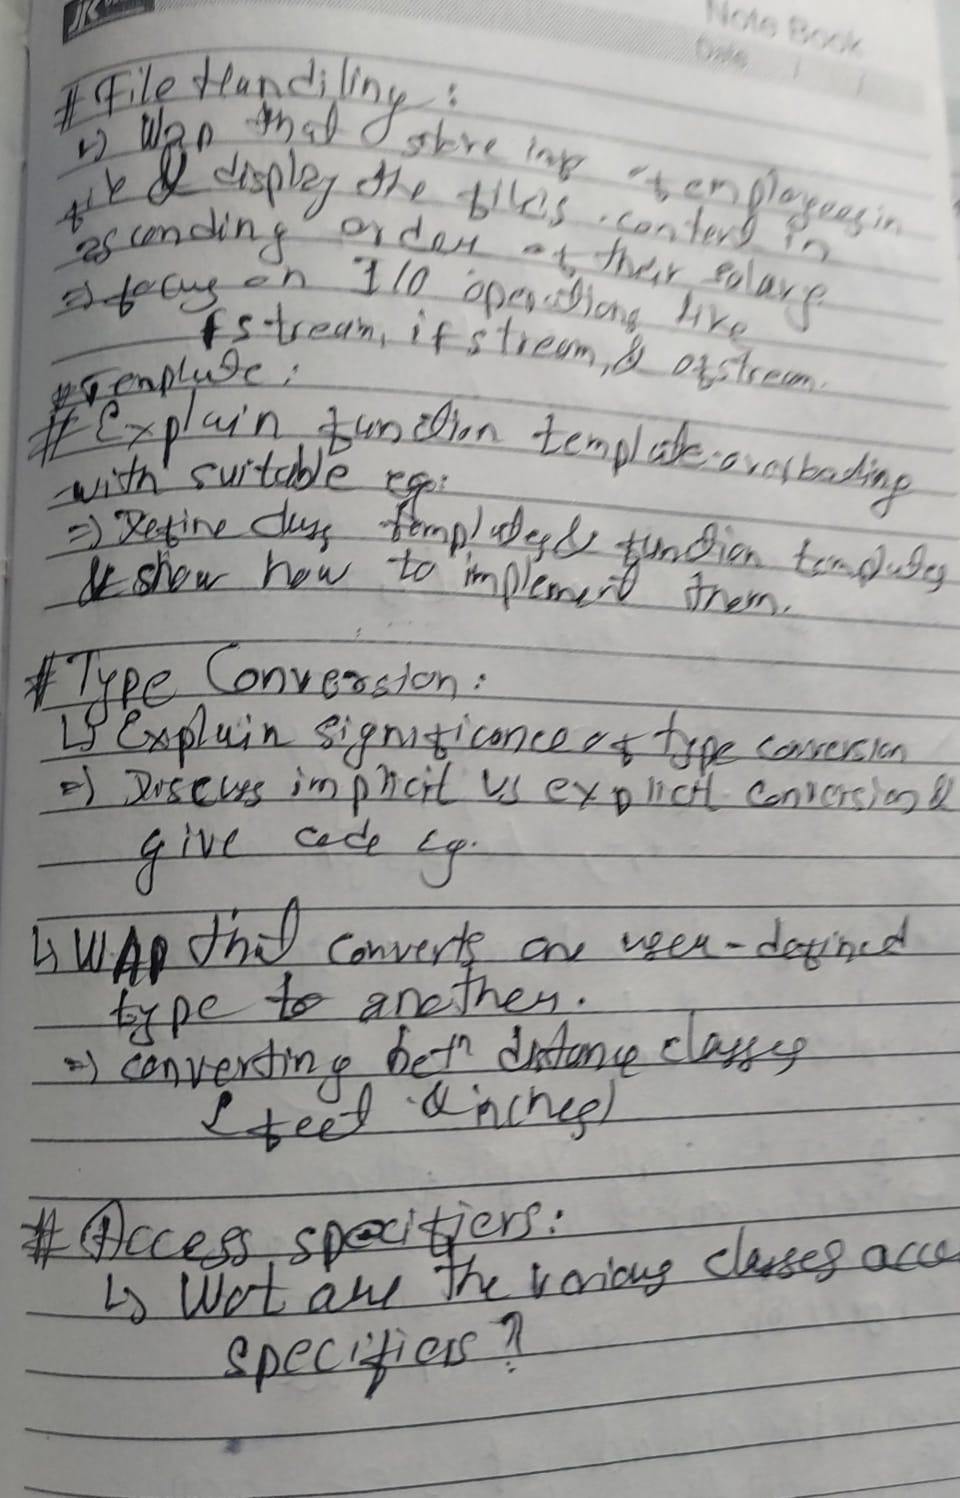 JK
Note Book
Date / /
# File Handiling :
↳ WAP that store info of employees in
file & display the file's content in
ascending order of their salary
=> focus on I/O operations like
fstream, ifstream, & ofstream.
# Template :
# Explain function template overloading
with suitable eg:
=> Define class templates & function templates
& show how to implement them.
# Type Conversion :
↳ Explain significance of type conversion
=> Discuss implicit vs explicit conversion &
give code eg.
↳ WAP that converts one user-defined
type to another.
=> converting betn distance classes
(feet & inches)
# Access specifiers :
↳ Wat are the various classes acce
specifiers ?